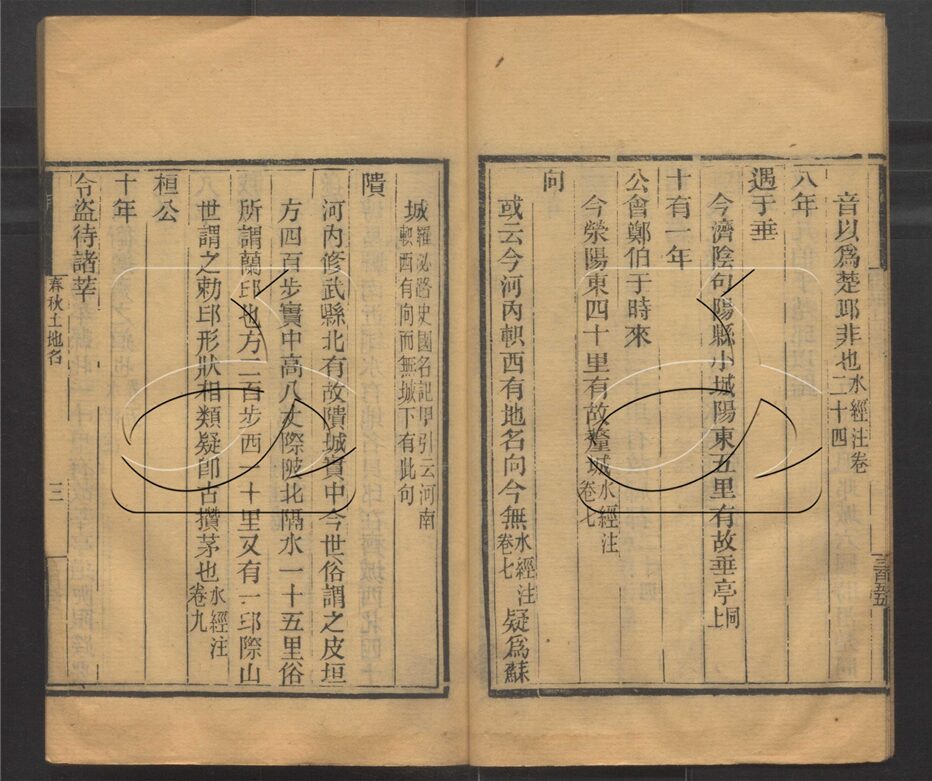 音以爲楚邱非也水經注卷二十四
八年
遇于垂
今濟陰句陽縣小城陽東五里有故垂亭同上
十有一年
公會鄭伯于時來
今滎陽東四十里有故釐城水經注卷七
向
或云今河內軹西有地名向今無水經注卷七疑爲蘇
城羅泌路史國名記甲引云河南軹西有向而無城下有此句
隤
河內修武縣北有故隤城實中今世俗謂之皮垣
方四百步實中高八丈際陂北隔水一十五里俗
所謂蘭邱也方二百步西一十里又有一邱際山
世謂之勅邱形狀相類疑卽古攢茅也水經注卷九
桓公
十年
令盜待諸莘
春秋土地名
三